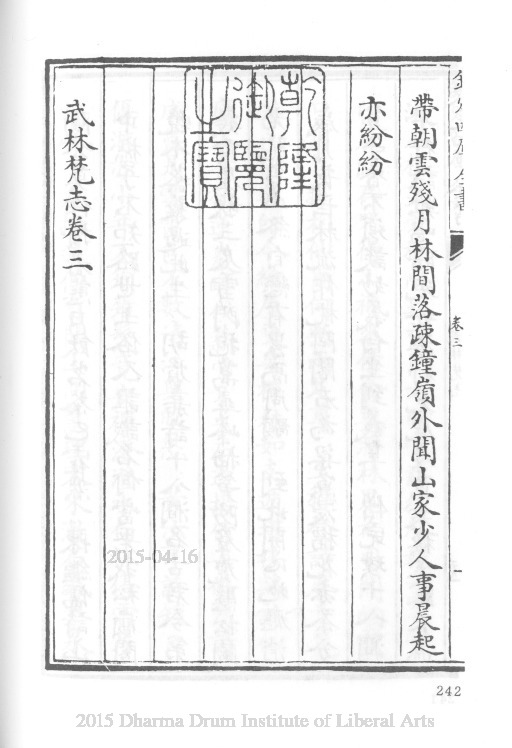 欽定四庫全書
卷三
帶朝雲殘月林間落疎鐘嶺外聞山家少人事晨起
亦紛紛
乾隆御覽之寶
武林梵志卷三
2015-04-16
242
2015 Dharma Drum Institute of Liberal Arts